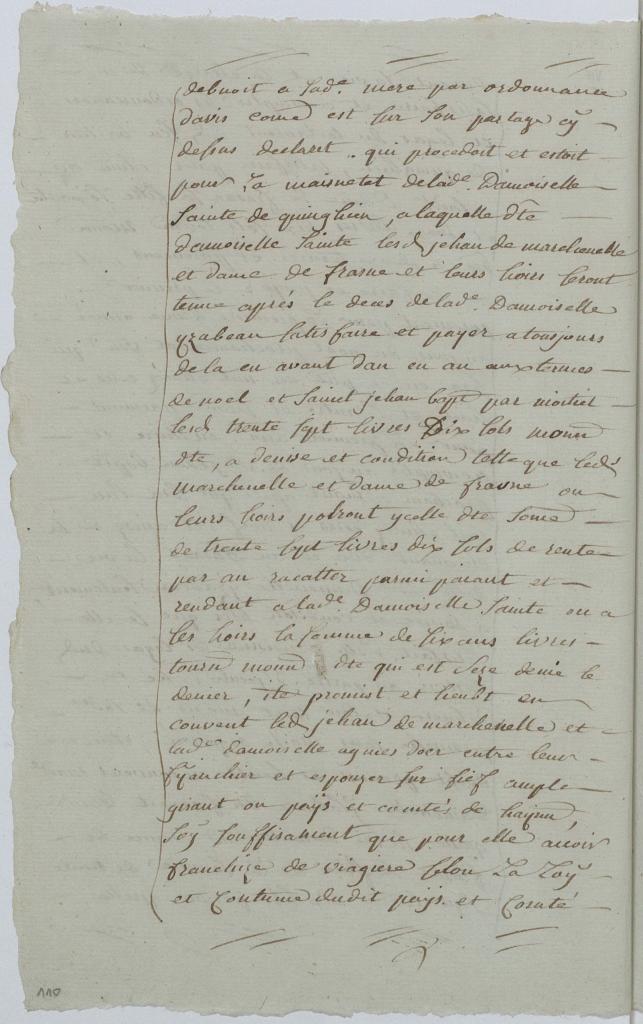 debvoit a lad.e mere par ordonnance
davis come est sur son partage cy
dessus declaret .. qui procedoit et estoit
pour la maisnetet de lad.e Damoiselle
Sainte de quinghien, a laquelle dte
demoiselle Sainte lesd jehan de marchenelle
et dame de frasne et leurs hoirs seront
tenue aprés le deces de lad.e Damoiselle
yzabeau satisfaire et payer a tousjours
de la en avant dan en an aux termes
de noel et Sainct jehan bapt par moitiet
lesd trente sept livres Dix sols monn
dte, a devise et condition telle que led.
marchenelle et dame de frasne ou
leurs hoirs polront ycelle dte some
de trente sept livres dix sols de rente
par an racatter parmi paiant et
rendant a lad.e Damoiselle Sainte ou a
ses hoirs la somme de six cens livres
tourn monn dte qui est seze denie le
denier, ite promist et heubt en
couvent led jehan de marchenelle et
lad.e damoiselle agnies doer entre leur
fyanchier et espouzer sur fief ample
gisant ou pays et comtés de haynn,
soy souffisament que pour elle avoir
franchise de viagiere selon La Loy
et Coutume dudit pays et Comté
110